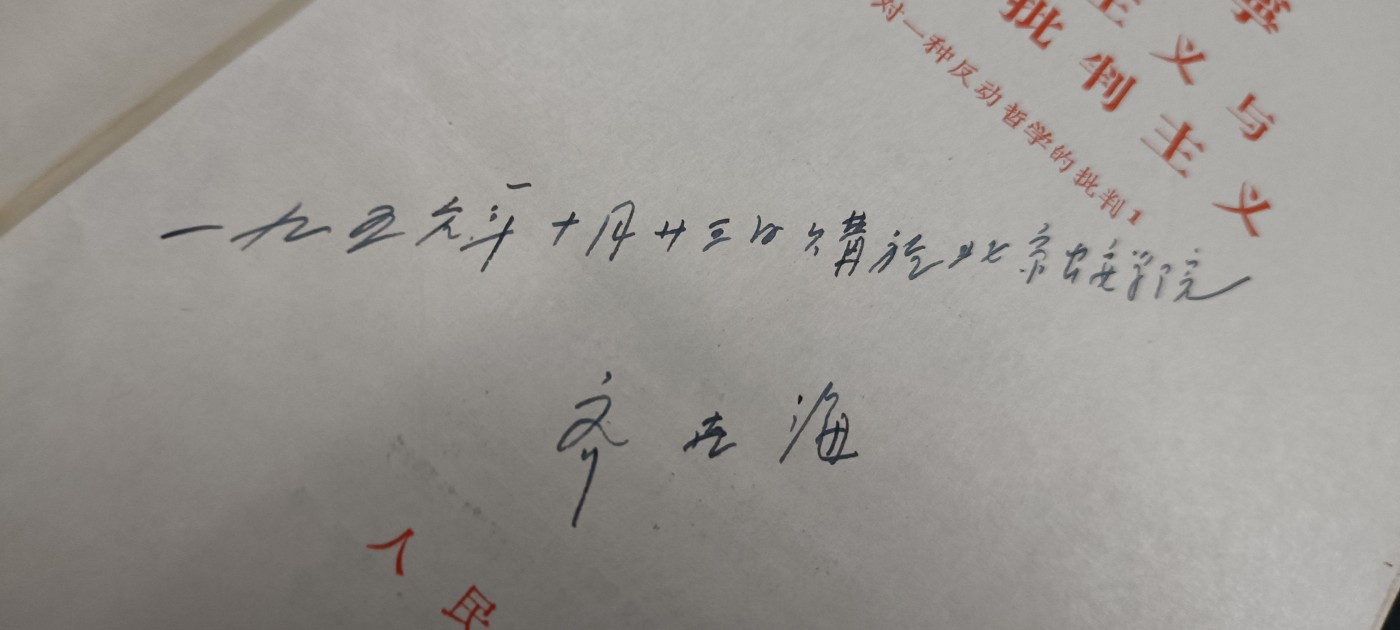 寧
主义与
批判主义
对一种反动哲学的批判1
一九五六年十月廿三日购於北京农业学院
齐世海
人民